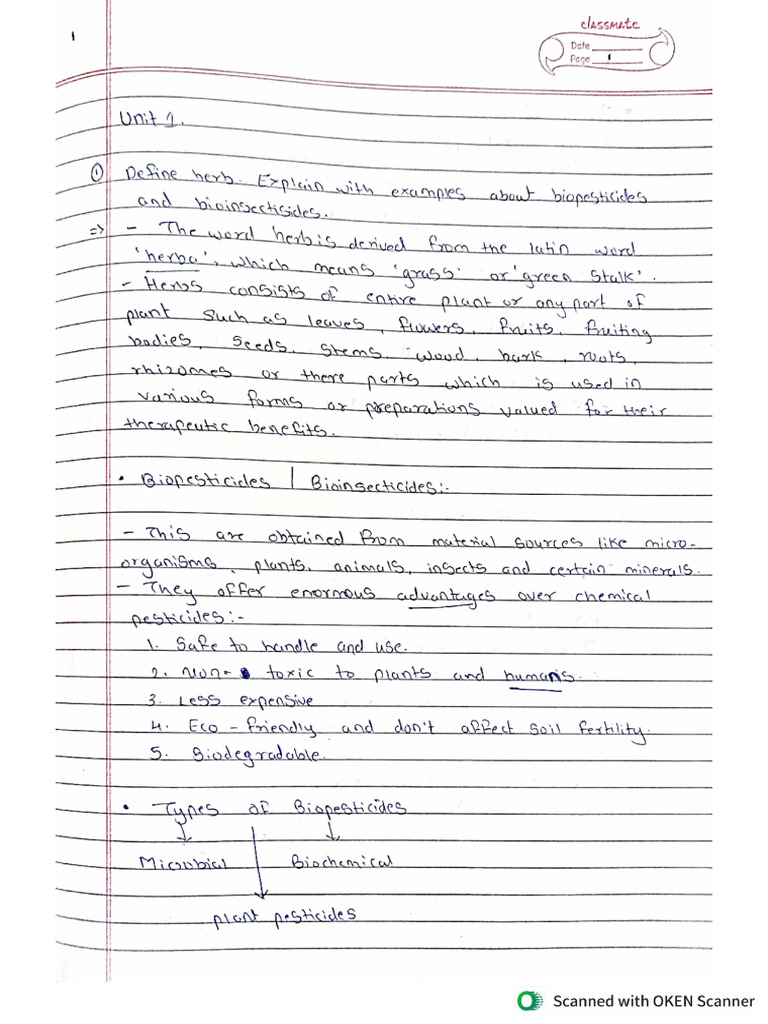 1
classmate
Date
Page 1
Unit 1.
① Define herb. Explain with examples about biopesticides
and bioinsectisides.
=> - The word herb is derived from the latin word
'herba', which means 'grass' or 'green stalk'.
- Herbs consists of entire plant or any part of
plant such as leaves, flowers, fruits, fruiting
bodies, seeds, stems, wood, bark, roots,
rhizomes or there parts which is used in
various forms or preparations valued for their
therapeutic benefits.
• Biopesticides | Bioinsecticides:-
- This are obtained from material sources like micro-
organisms, plants, animals, insects and certain minerals.
- They offer enormous advantages over chemical
pesticides:-
1. Safe to handle and use.
2. Non- toxic to plants and humans.
3. Less expensive
4. Eco-friendly and don't affect soil fertility.
5. Biodegradable.
• Types of Biopesticides
Microbial Biochemical
plant pesticides
Scanned with OKEN Scanner